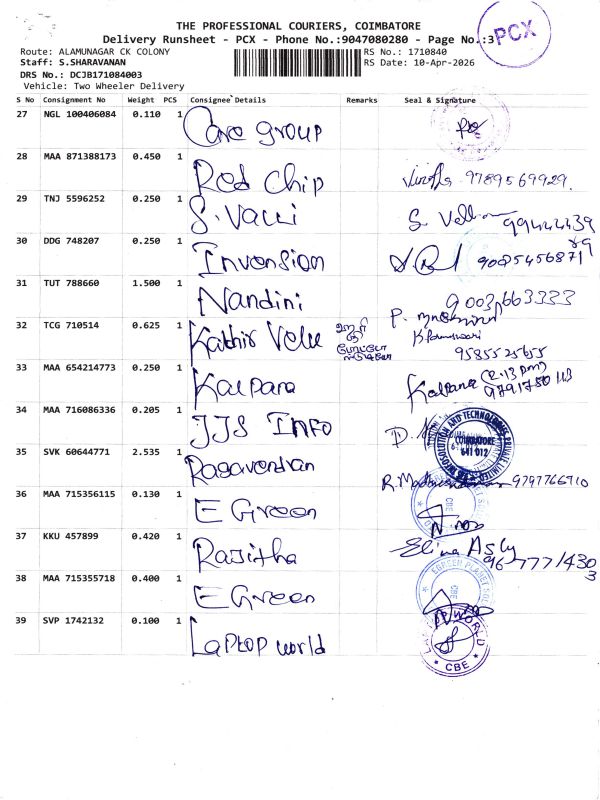 THE PROFESSIONAL COURIERS, COIMBATORE
Delivery Runsheet - PCX - Phone No.:9047080280 - Page No.:3
PCX
Route: ALAMUNAGAR CK COLONY
RS No.: 1710840
Staff: S.SHARAVANAN
RS Date: 10-Apr-2026
DRS No.: DCJB171084003
Vehicle: Two Wheeler Delivery
S No Consignment No Weight PCS Consignee Details Remarks Seal & Signature
27 NGL 100406084 0.110 1 Care group
28 MAA 871388173 0.450 1 Red chip 9789569929.
29 TNJ 5596252 0.250 1 S. Valli S.
30 DDG 748207 0.250 1 Invension
31 TUT 788660 1.500 1 Nandini
32 TCG 710514 0.625 1 Kathir Velu
9585525655
33 MAA 654214773 0.250 1 Kalpana Kalpana (2.13 pm)
34 MAA 716086336 0.205 1 JJS INFO
COIMBATORE
641 012
35 SVK 60644771 2.535 1 Ragavendran 9797766710
36 MAA 715356115 0.130 1 E Green
CBE
37 KKU 457899 0.420 1 Rajitha
38 MAA 715355718 0.400 1 E Green
CBE
39 SVP 1742132 0.100 1 Laptop world
WORLD
* CBE *